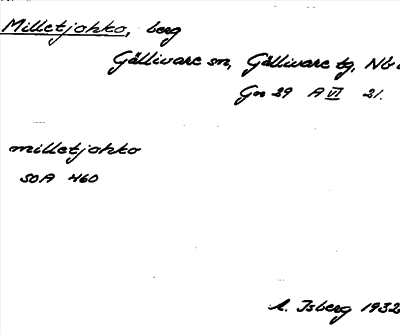 Milletjohko, berg
Gällivare sn, Gällivare tg,
Gn 29 A VI 21.
milletjohko
SOA 460
A. Isberg 1932